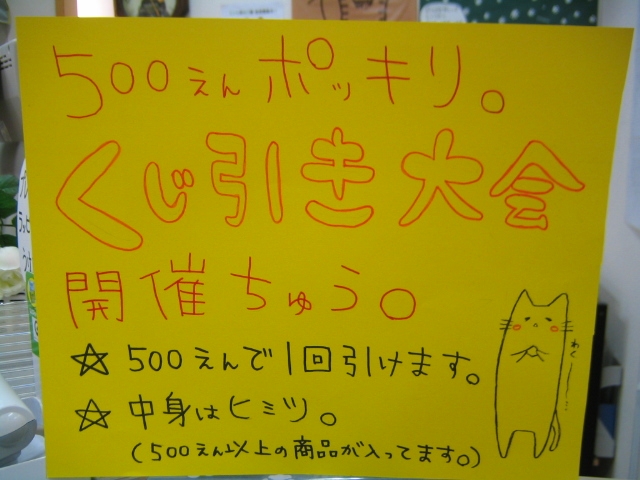 500えんポッキリ。
くじ引き大会
開催ちゅう。
☆ 500えんで1回引けます。
☆ 中身はヒミツ。
(500えん以上の商品が入ってます。)